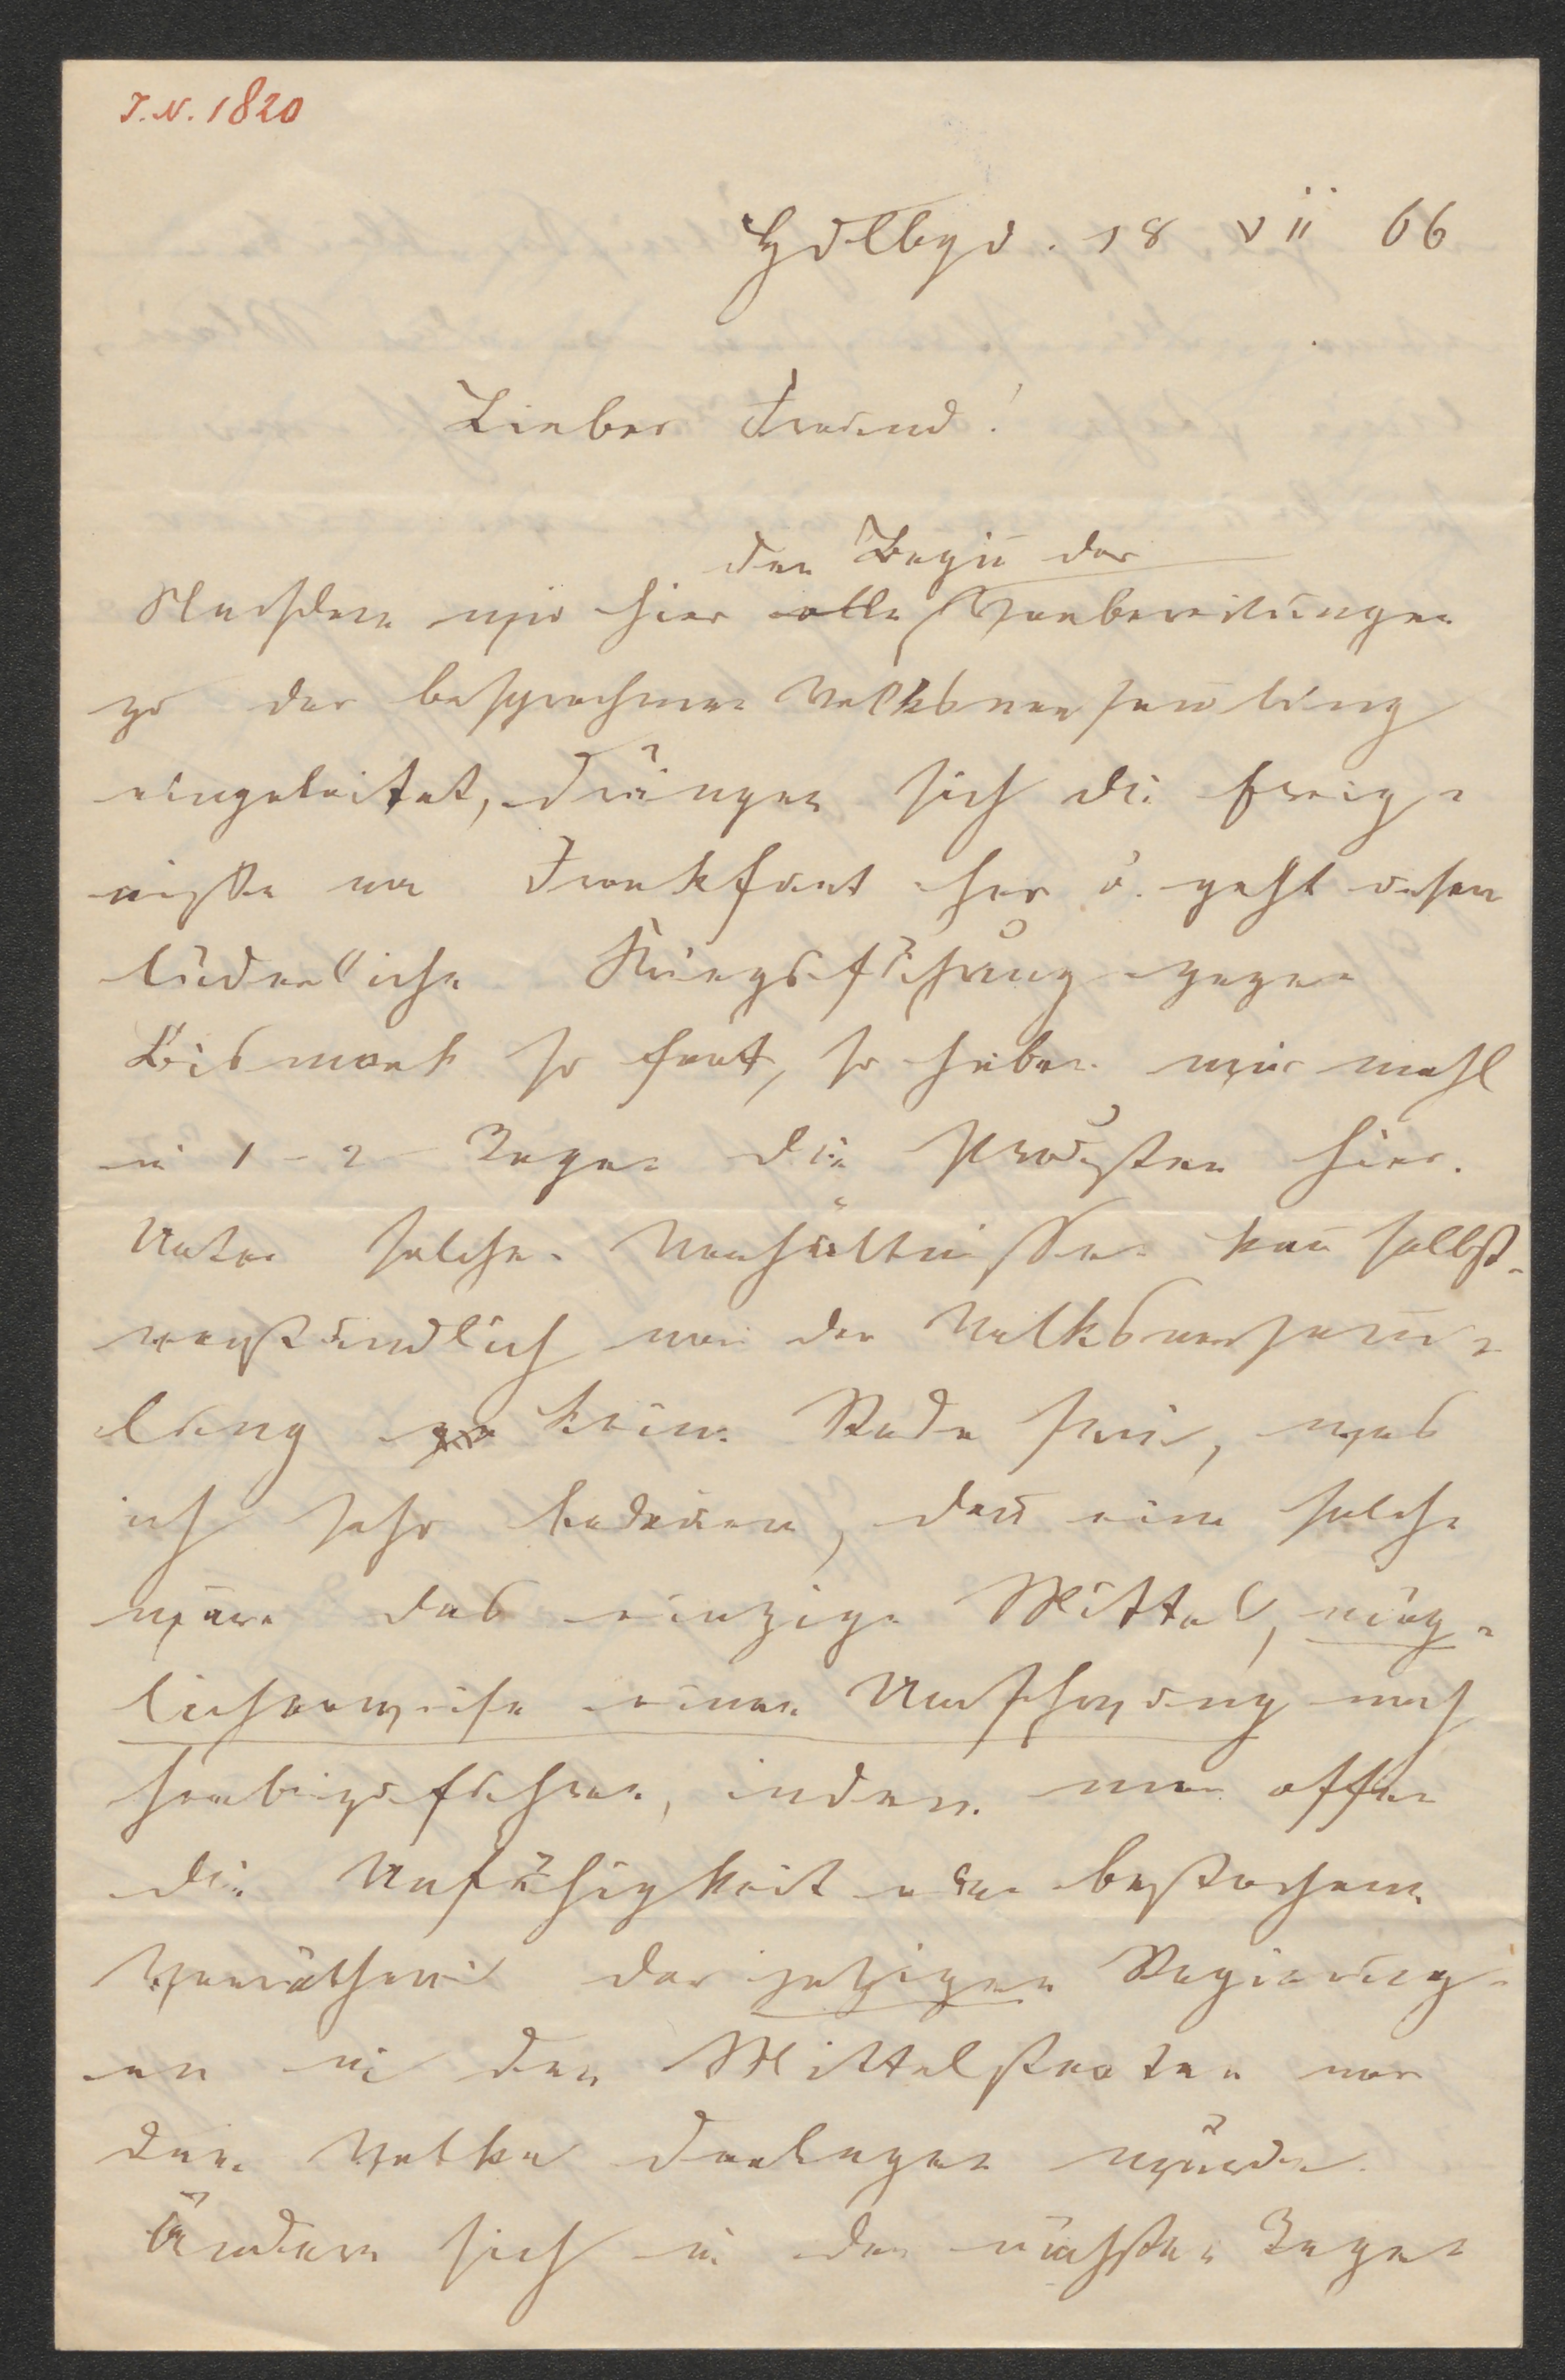 T.N. 1820
Hdlbgd. 18 VII 66
Lieber Freund!
den Begiñ der
Nachdem wir hier alle Vorbereitungen
zu der besprochenen Volksversam̄lung
eingeleitet, drängen sich die Ereig-
nisse von Frankfurt her u. geht unsere
lüderliche Kriegsführung gegen
Bismark so fort, so haben wir wohl
in 1-2 Tagen die Preußen hier.
Unter solchen Verhältnissen kañ selbst-
verständlich von der Volksversam̄-
lung keine Rede sein, was
ich sehr bedaure, deñ eine solche
wäre das einzige Mittel, mög-
licherweise einen Umschwung noch
herbeizuführen, indem man offen
die Unfähigkeit oder bestochene
Verrätherei der jetzigen Regierung-
en in den Mittelstaaten vor
dem Volke darlegen würde.
Ändern sich in den nächsten Tagen